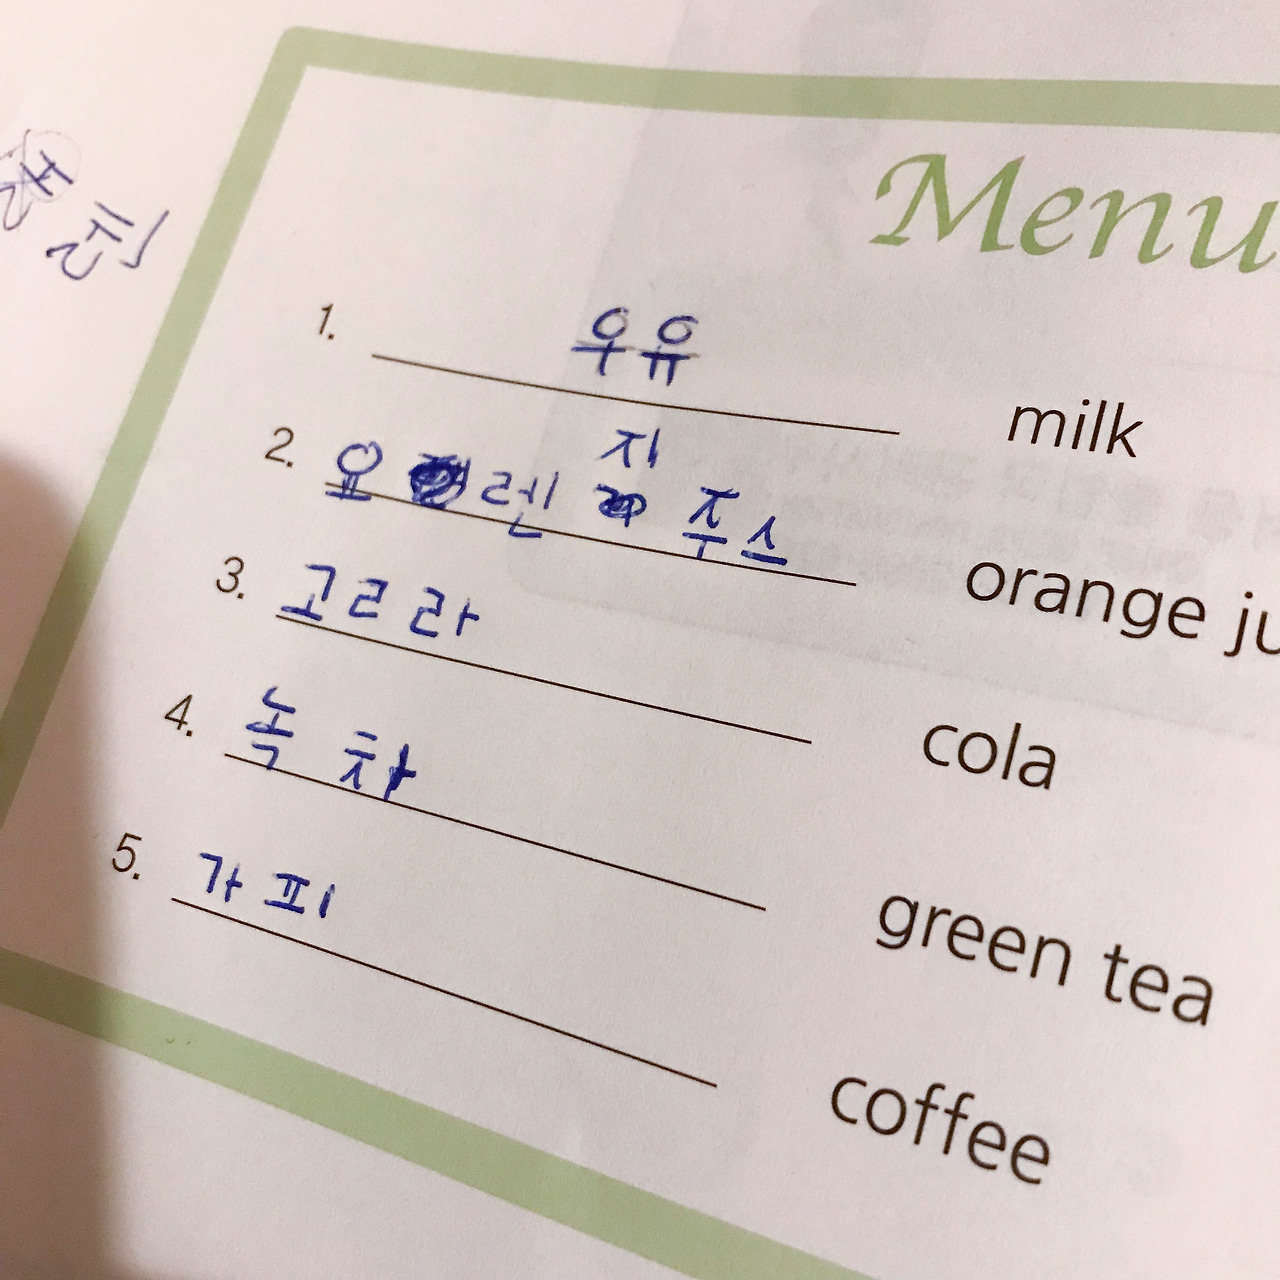 Menu
1. 우유 milk
2. 요렌지 주스 orange ju
3. 고르라 cola
4. 녹차 green tea
5. 가피 coffee